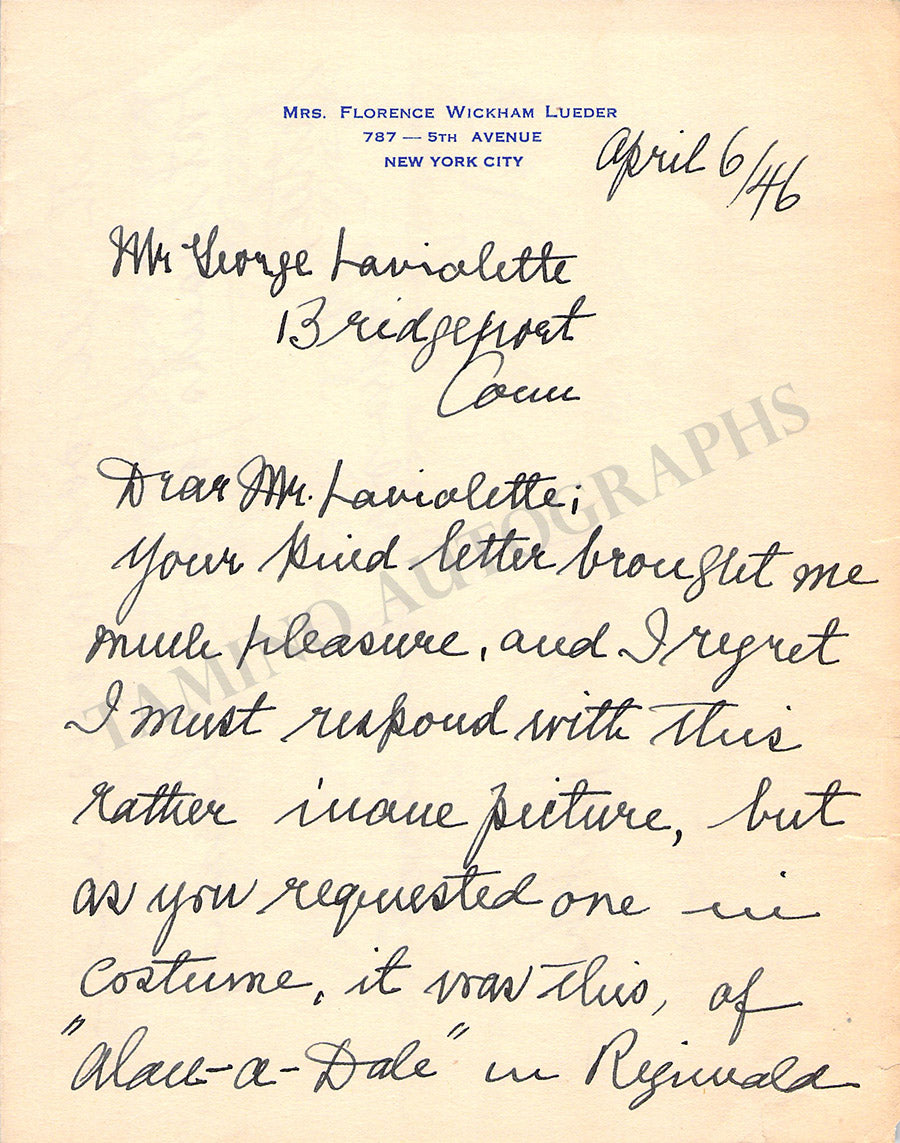 MRS. FLORENCE WICKHAM LUEDER
787 — 5TH AVENUE
NEW YORK CITY
April 6/46
Mr George Laviolette
Bridgeport
Conn
Dear Mr. Laviolette;
Your kind letter brought me
much pleasure, and I regret
I must respond with this
rather inane picture, but
as you requested one in
costume, it was this, of
"Alan-a-Dale" in Reginald
TAMINO AUTOGRAPHS